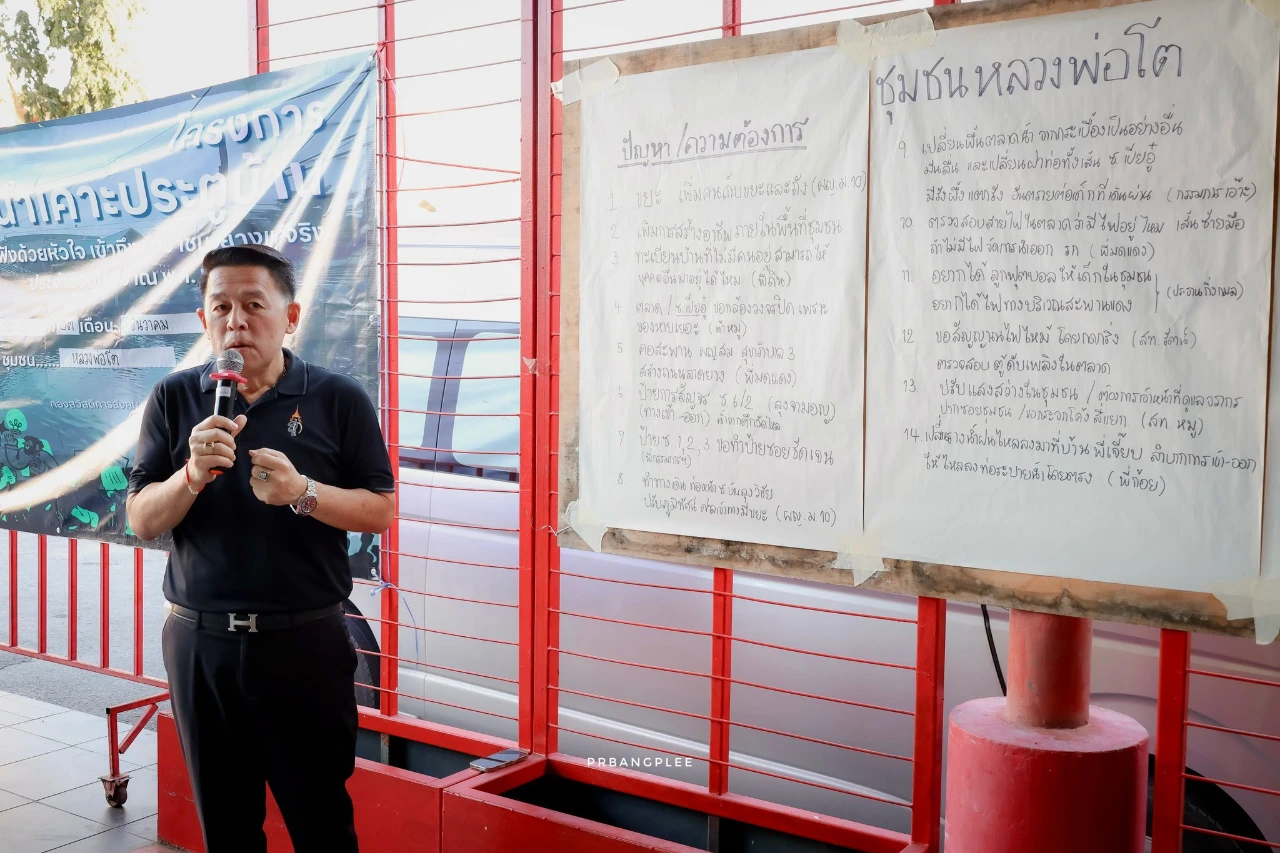 โครงการ
เคาะประตูบ้าน
ฟังด้วยหัวใจ
เดือน ธันวาคม
ชุมชน..... หลวงพ่อโต
กองสวัสดิการสังคม
ปัญหา / ความต้องการ
1 ขยะ เพิ่มคนเก็บขยะและถัง (ผญ.ม.10)
2 เพิ่มการสร้างอาชีพ ภายในพื้นที่ชุมชน
3 ทะเบียนบ้านที่ไม่มีคนอยู่ สามารถให้
บุคคลอื่นมาอยู่ได้ไหม
4 ตลาด / ซ.เปียอู๋ ขอกล้องวงจรปิด เพราะ
ของหายเยอะ (น้าหมู)
5 คอสะพาน ผญ.สม สุขาภิบาล 3
สร้างถนนลาดยาง (พี่มดแดง)
6 ป้ายการสัญจร ซ. 6/2 (ลุงจามอญ)
(ทางเข้า-ออก)
7 ป้าย ซ. 1, 2, 3 ขอทำป้ายซอยชัดเจน
8
ปรับภูมิทัศน์ (ผญ.ม 10)
ชุมชนหลวงพ่อโต
9 เปลี่ยนพื้นตลาดน้ำ จากกระเบื้องเป็นอย่างอื่น
มันลื่น และเปลี่ยนฝาท่อทั้งเส้น ซ. เปียอู๋
อันตรายต่อเด็กที่เดินผ่าน (กรรมการเอ๋าะ)
10. ตรวจสอบสายไฟในตลาดว่ามีไฟอยู่ไหม เส้นซ้ายมือ
ถ้าไม่มีไฟ จัดการนำออก รก (พี่มดแดง)
11 อยากได้ ลูกฟุตบอล ให้เด็กในชุมชน
อยากได้ไฟทางบริเวณสะพานแดง (ประธานกิ่งกมล)
12 ขอสัญญาณไฟไหม้ โดยกดกริ่ง (สท. รัตน์)
ตรวจสอบ ตู้ดับเพลิงในตลาด
13 ปรับแสงสว่างในชุมชน / ต้องการเจ้าหน้าที่ดูแลจราจร
ปากซอยชุมชน / ขอกระจกโค้ง สี่แยก (สท. หมู)
14 เปลี่ยนรางน้ำฝนไหลลงมาที่บ้าน พี่เจี๊ยบ ลำบากการเข้า-ออก
ให้ไหลลงท่อระบายน้ำโดยตรง (พี่ก้อย)
PRBANGPLEE